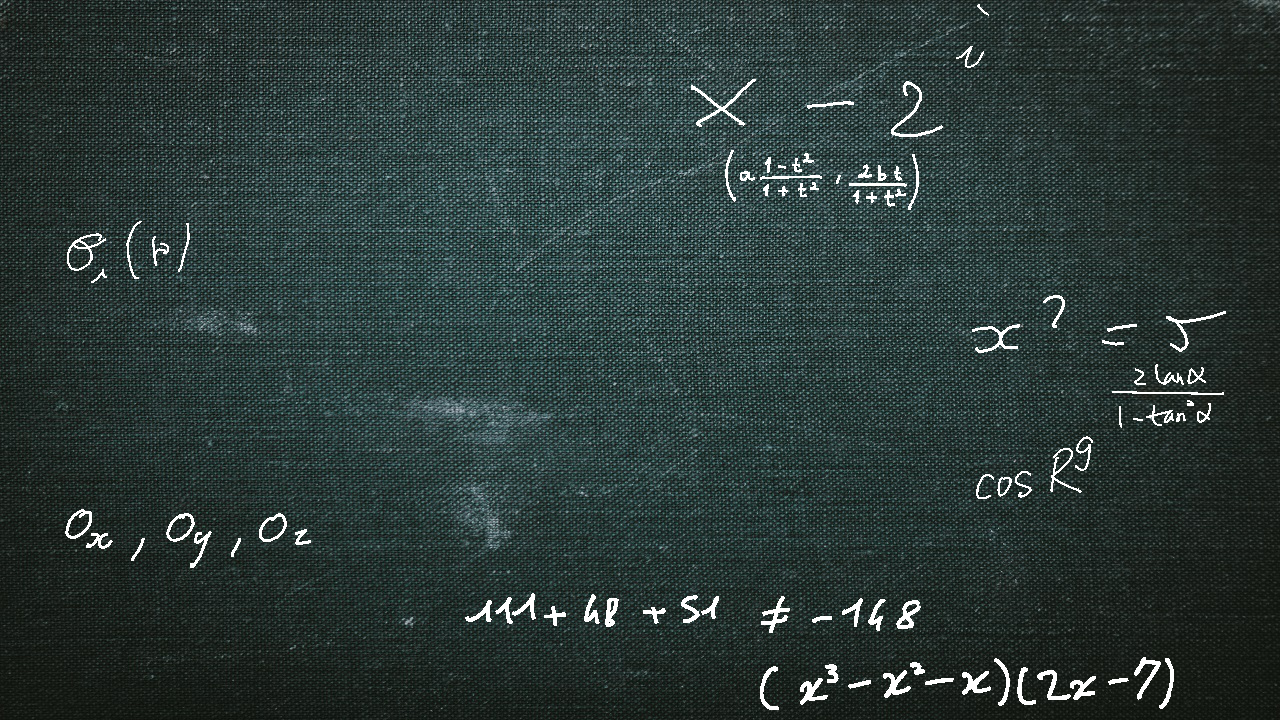 x - 2^i
(a (1-t²)/(1+t²), (2bt)/(1+t²))
σ_i(p)
x^? = √
(2 tan α)/(1 - tan² α)
cos R^g
O_x, O_y, O_z
111 + 48 + 51 ≠ -148
(x³ - x² - x)(2x - 7)